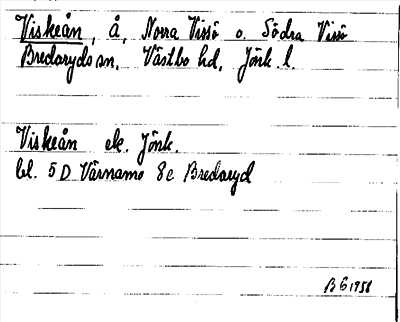 Viskeån, å, Norra Vissö o. Södra Vissö
Bredaryds sn, Västbo hd, Jönk. l.
Viskeån ek. Jönk.
bl. 5D Värnamo 8c Bredaryd
B G 1958